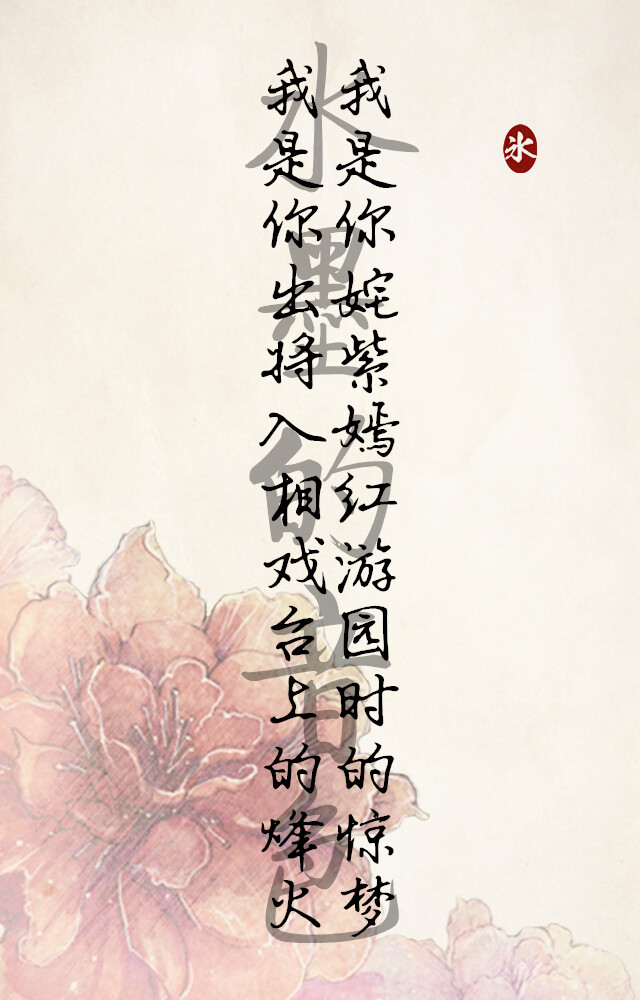 我是你姹紫嫣红游园时的惊梦
我是你出将入相戏台上的烽火
水墨的音色
冰